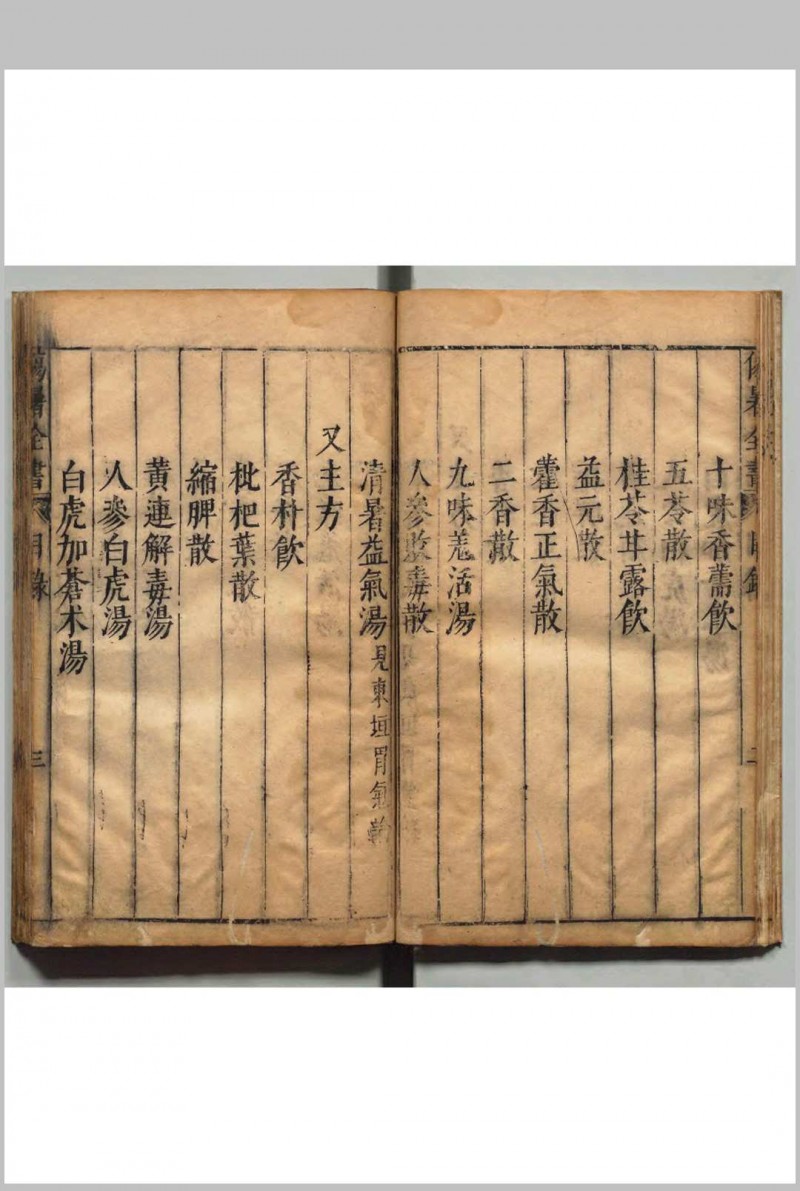 傷暑全書 目錄 二
十味香薷飲
五苓散
桂苓甘露飲
益元散
藿香正氣散
二香散
九味羗活湯
人參敗毒散
清暑益氣湯見東垣胃氣論
又主方
香朴飲
枇杷葉散
縮脾散
黃連解毒湯
人參白虎湯
白虎加蒼术湯
傷暑全書 目錄 三